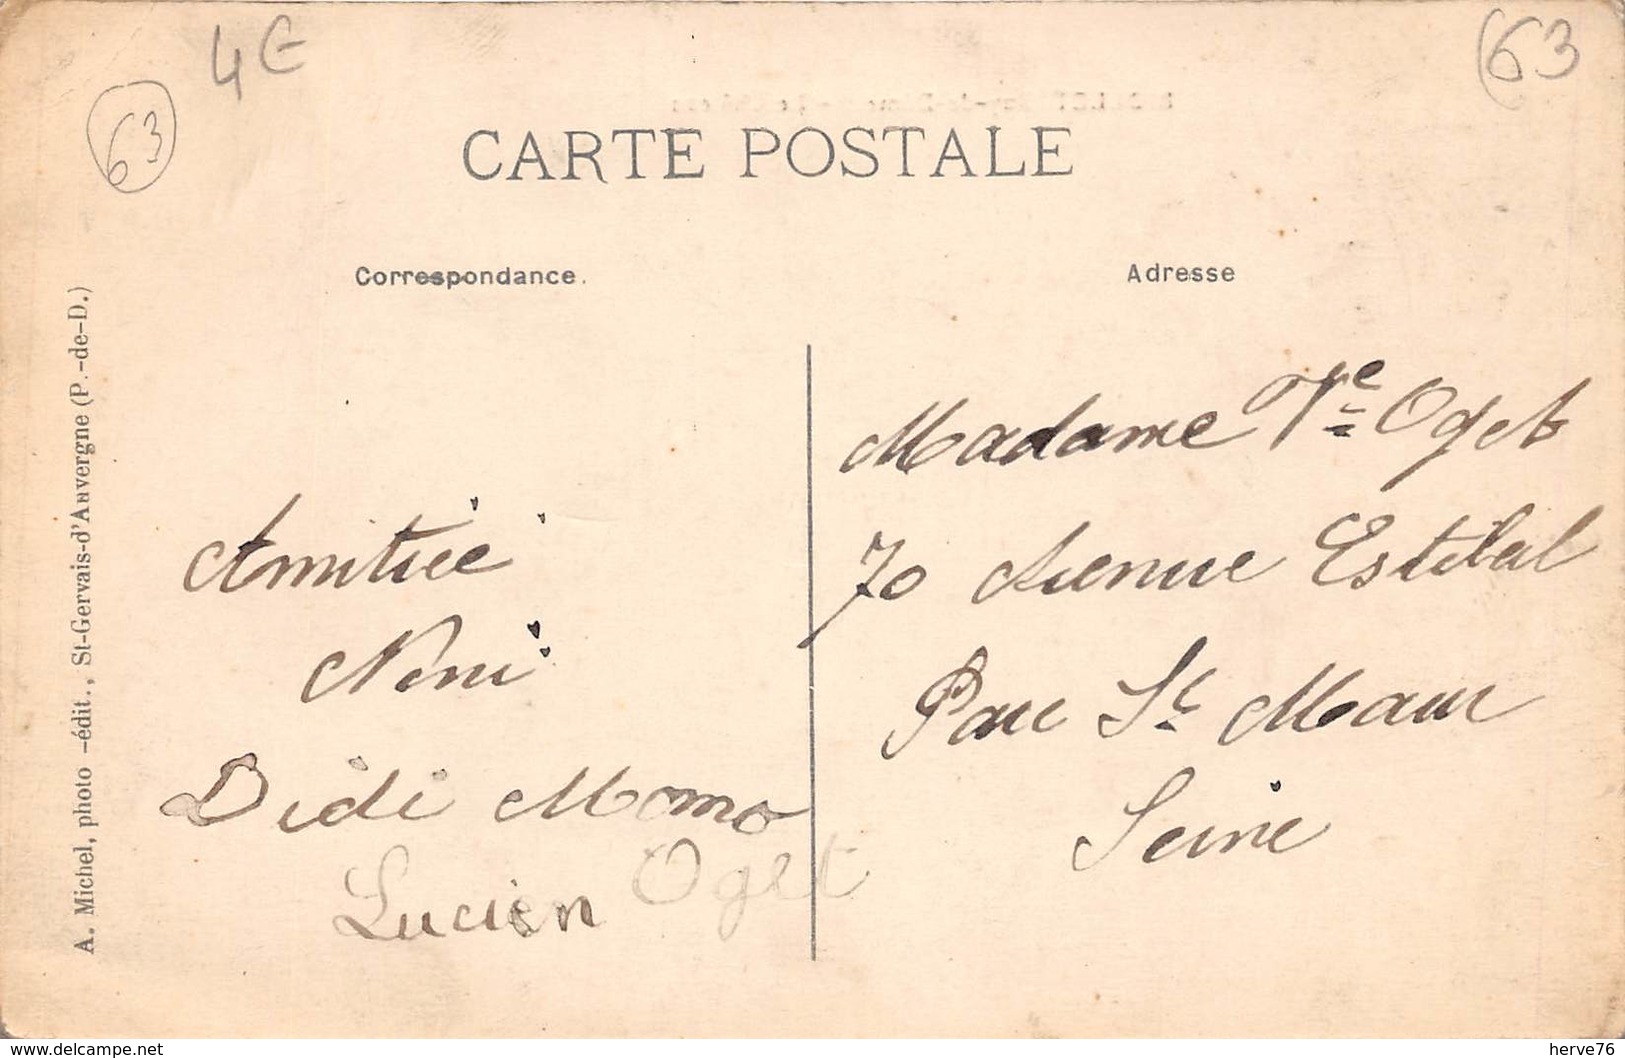 4€
63
63
CARTE POSTALE
Correspondance.
Adresse
A. Michel, photo-édit., St-Gervais-d'Auvergne (P.-de-D.)
Amitiée
Néni
Didi Momo
Lucien Oget
Madame Vve Oget
70 Avenue
Parc St Maur
Seine
www.delcampe.net
herve76